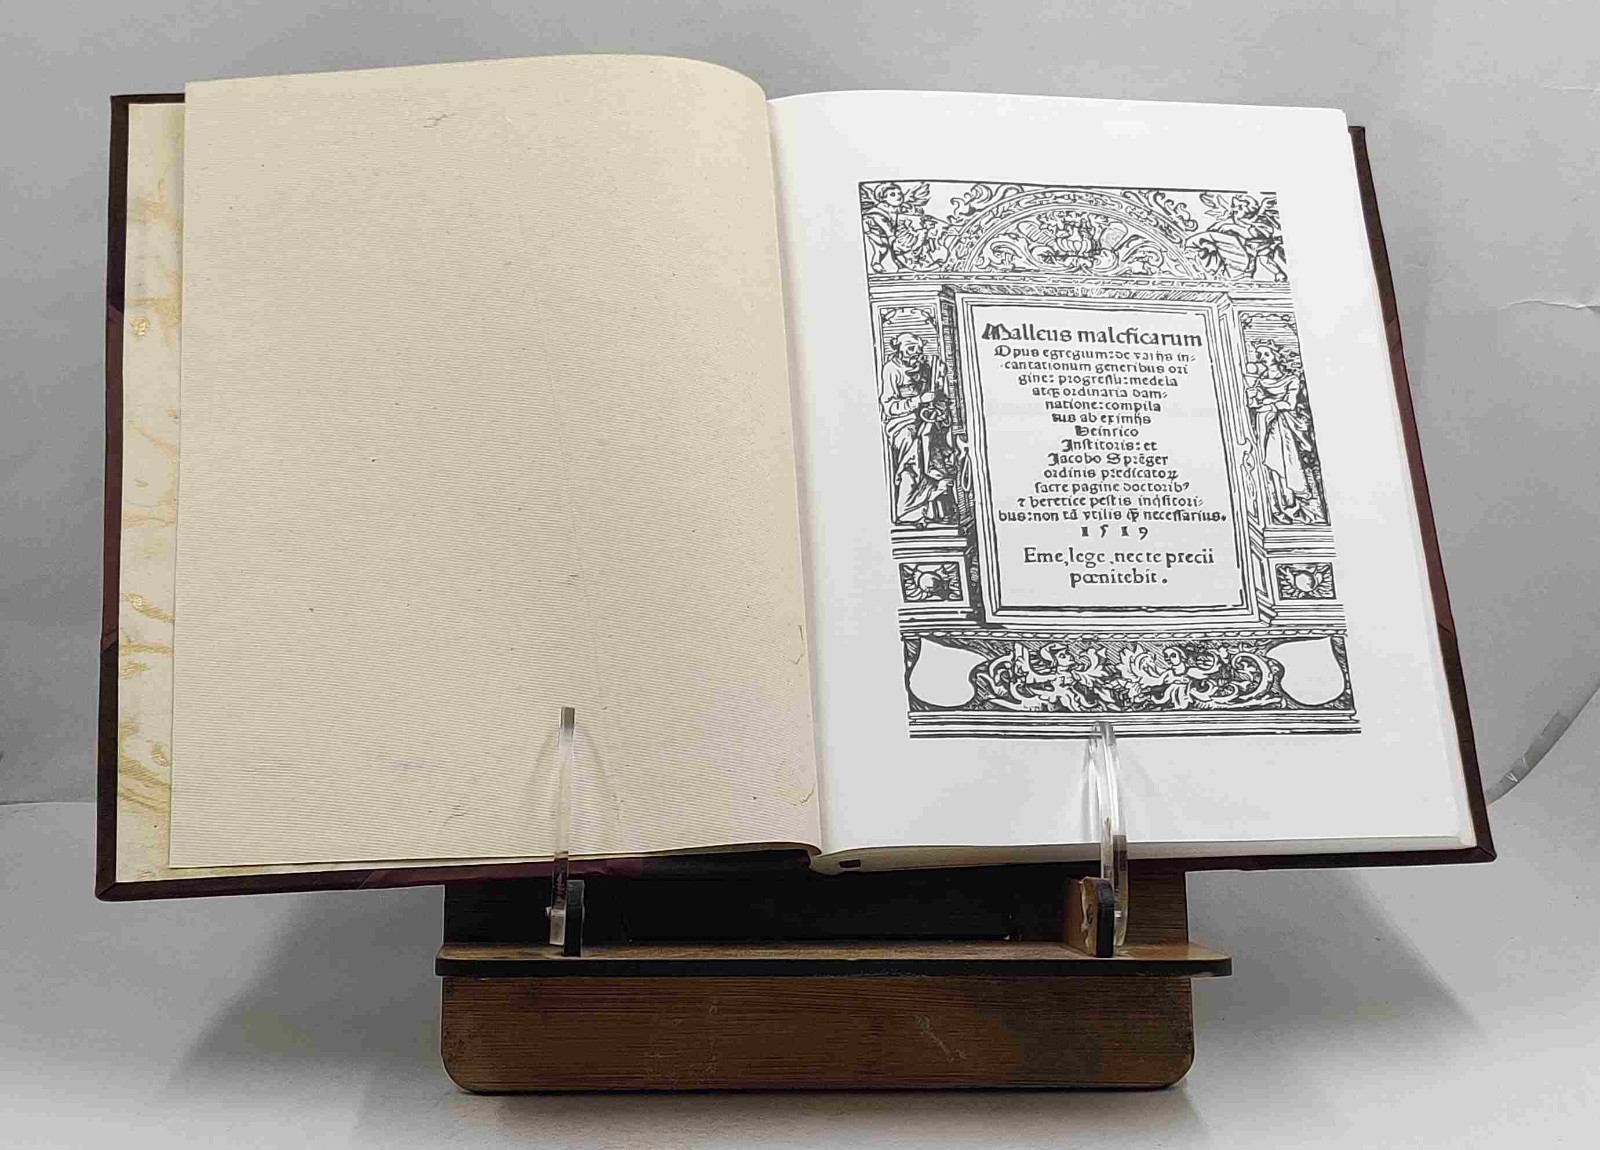 Malleus maleficarum
Opus egregium: de varijs in-
cantationum generibus ori
gine: progressu: medela
atqꝫ ordinaria dam-
natione: compila
tus ab eximijs
Heinrico
Institoris: et
Jacobo Sprẽger
ordinis predicatoꝝ
sacre pagine doctoribꝰ
⁊ heretice pestis inq̃sitori-
bus: non tã vtilis q̃ȝ necessarius.
1519
Eme, lege, nec te precii
pœnitebit.